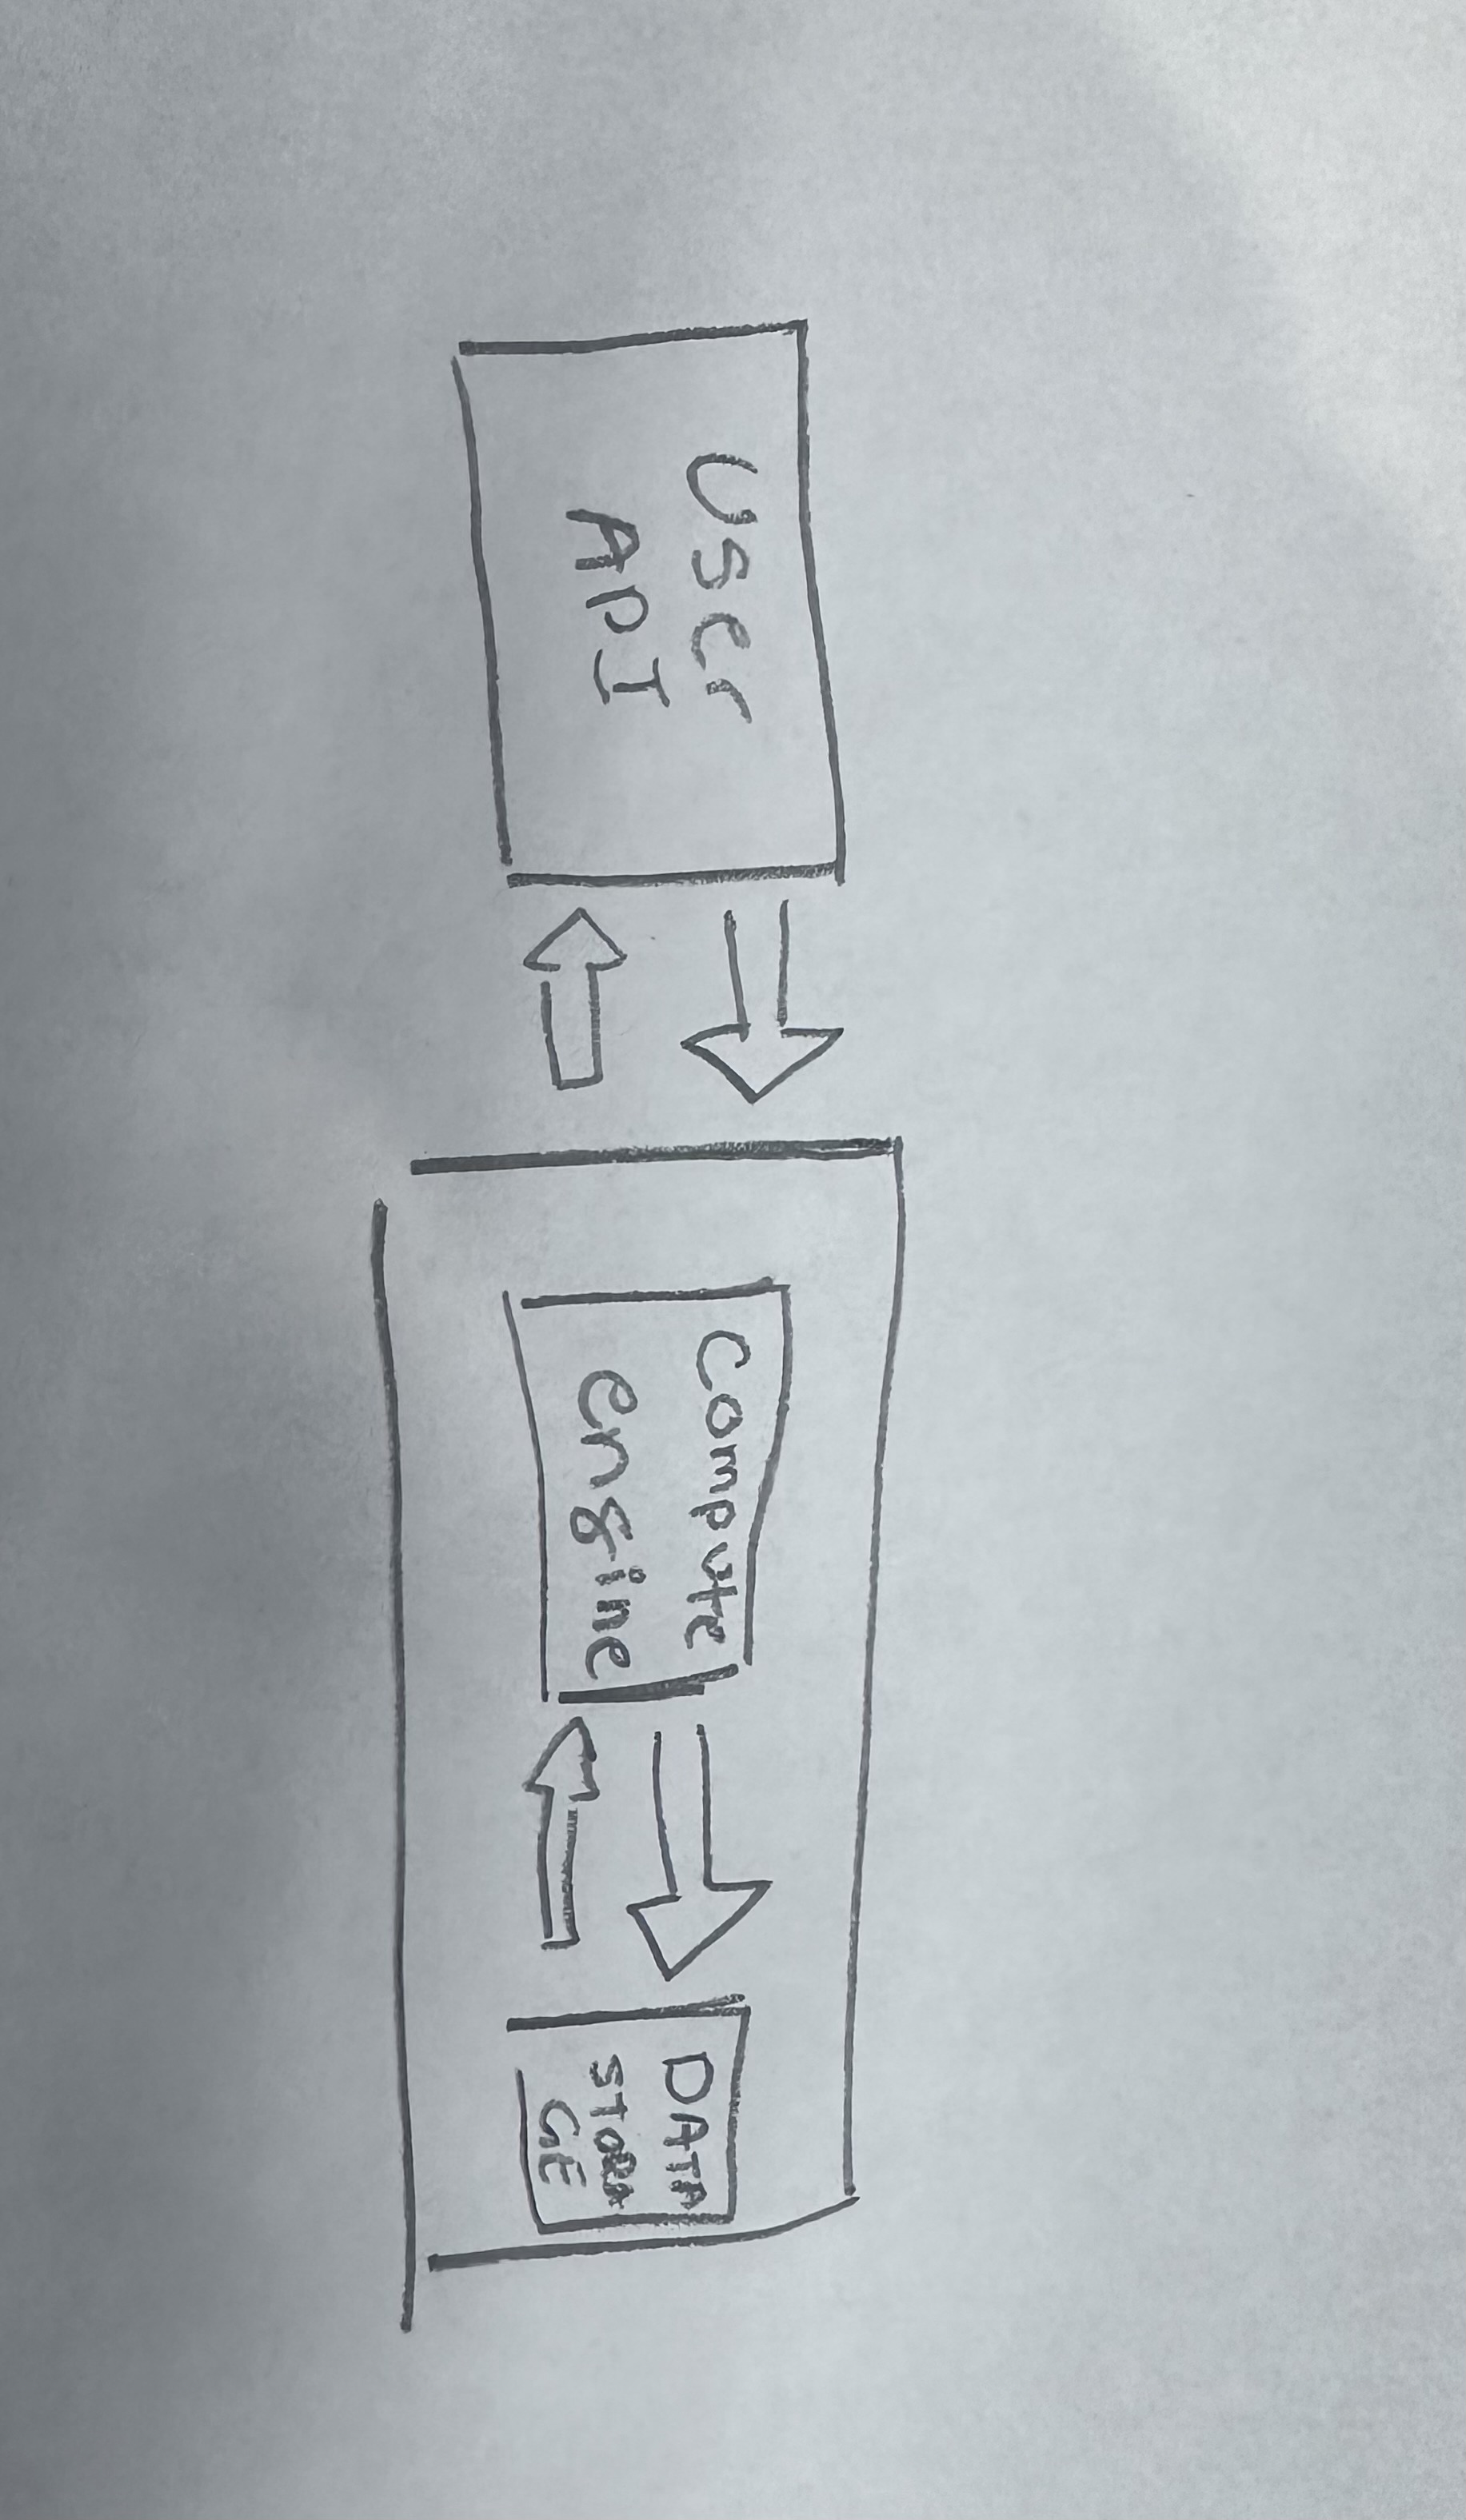 User
API
Compute
engine
DATA
STORA
GE